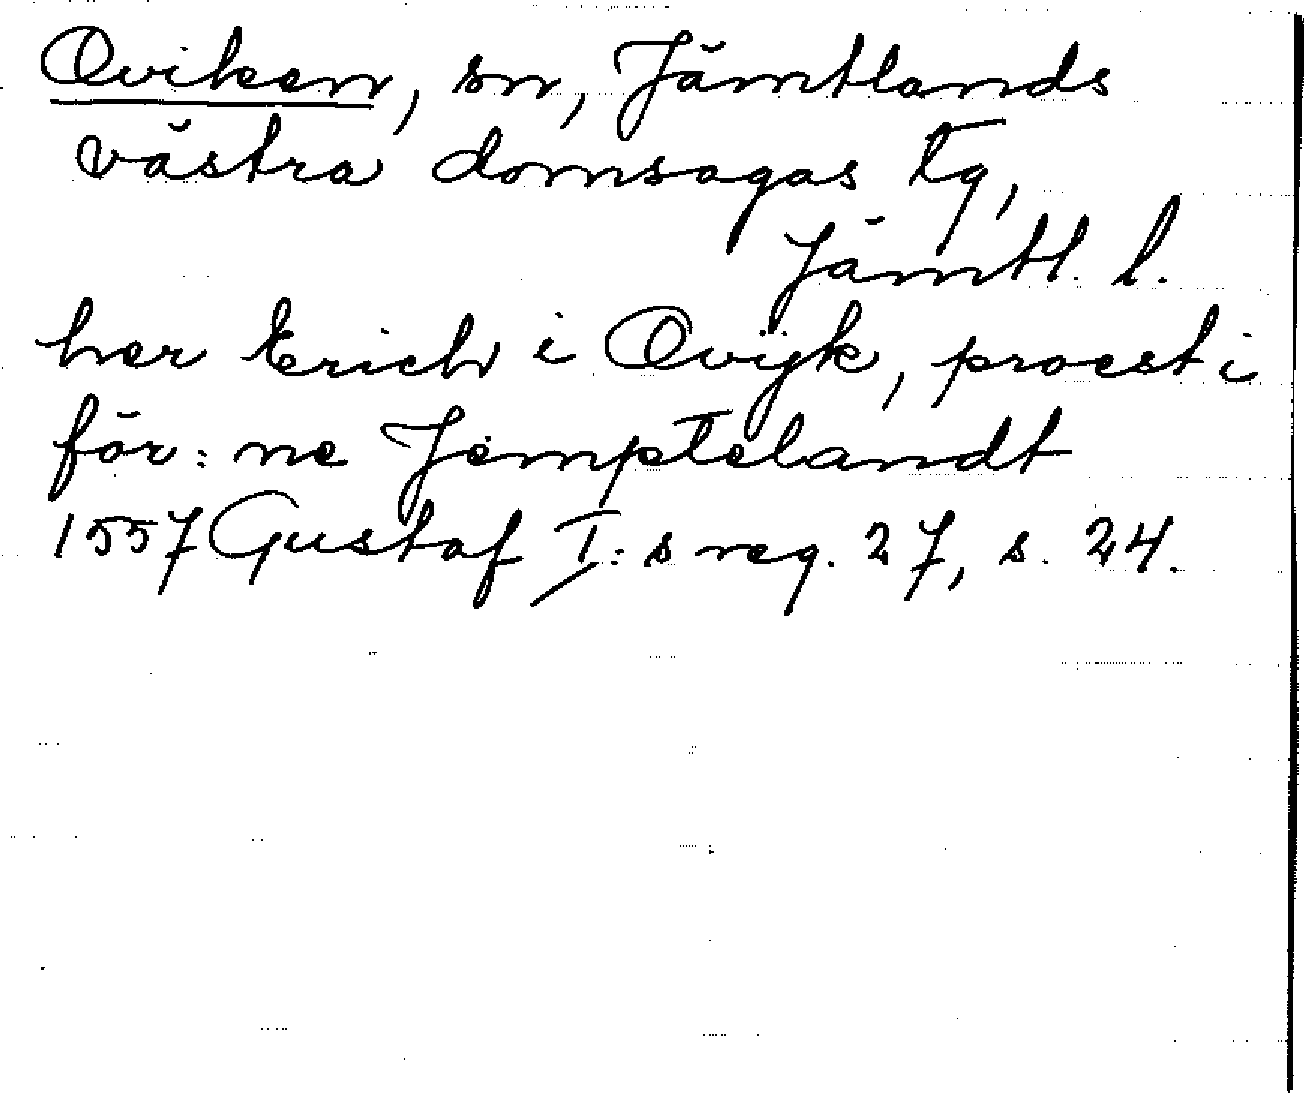 Oviken, sn, Jämtlands
västra domsagas tg,
Jämtl. l.
her Erich i Ovijk, proest i
för:ne Jemptelandt
1557 Gustaf I:s reg. 27, s. 24.